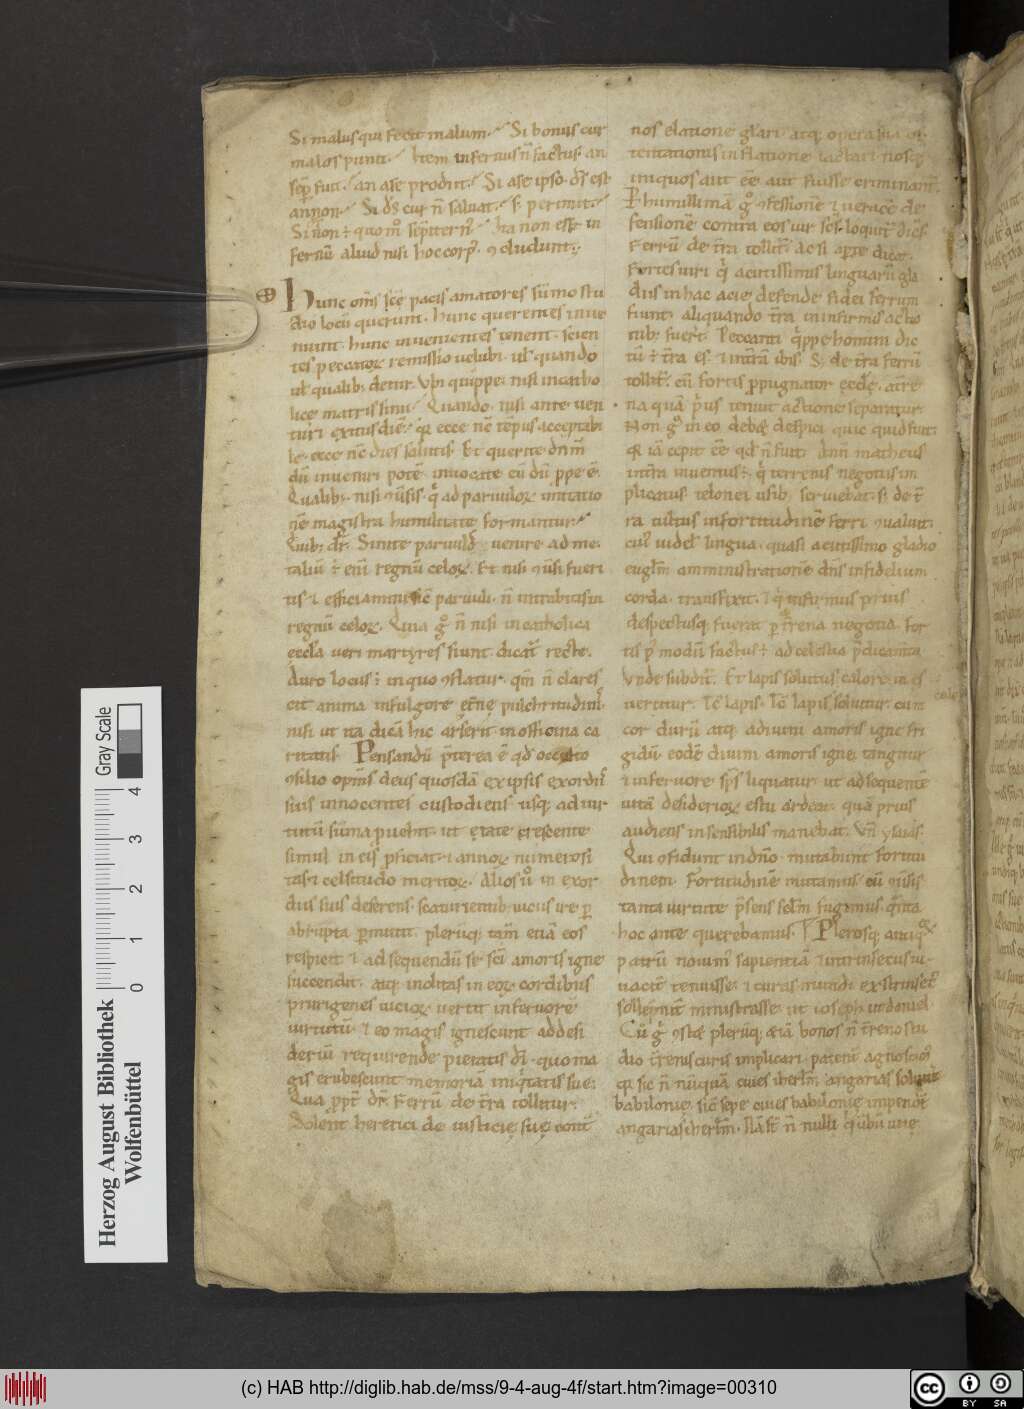 Si malus qui fecit malum. Si bonus cur
malos punit. Item infernus n̄ factus. an
sēp fuit. an a se prodiit. Si a se ipso. d̄s est
annon. Si d̄s cur n̄ saluat. perimit.
Si non
fernū aliud nisi hoc corp̄. ꝯcludunt.
Hunc om̄s scē pacis amatores summo stu
dio locū querunt. hunc querentes inue
niunt. hunc inuenientes tenent. scien
tes peccatoꝝ remissio uel ubi. ul quando
ul qualib; detur. Vbi quippe. nisi in catho
lice matris sinu. Quando. nisi ante uen
turi exitus diē. qꝫ ecce nc̄ tēpus acceptabi
le. ecce nc̄ dies salutis. Et querite dn̄m
dū inueniri potē. inuocate eū dū ꝓpe ē.
Qualib; nisi ꝯuersis. q̄ ad paruuloꝝ imitatio
nē magistra humilitate formantur.
Quib; dr̄. Sinite paruulos uenire ad me.
taliū ē enī regnū celoꝝ. Et nisi ꝯuersi fueri
tis ⁊ efficiamini sic̄ paruuli. n̄ intrabitis in
regnū celoꝝ. Quia g̊ n̄ nisi in catholica
eccła ueri martyres fiunt. dicat̄ recte.
Auro locus ē in quo ꝯflatur. qm̄ n̄ clares
cit anima in fulgore etn̄ę pulchritudinis.
nisi ut ita dicā hic arserit in officina ca
ritatis. Pensandū p̄terea ē qd̄ occulto
ꝯsilio opifx̄ deus quosdā ex ipsis exordiis
suis innocentes custodiens usq; ad uir
tutū summa puehit. ut ętate crescente
simul in eis ꝓficiat ⁊ annoꝝ numerosi
tas ⁊ celsitudo meritoꝝ. Alios ů in exor
diis suis deserens. scaturientib; uiciis ire p
abrupta pmittit. plerūq; tam̄ etiā eos
respicit ⁊ ad sequendū se scī amoris igne
succendit. atq; inolitas in eoꝝ cordibus
prurigines uicioꝝ uertit in feruorē
uirtutū. ⁊ eo magis ignescunt ad desi
deriū requirende pietatis dī. quo ma
gis erubescunt memoriā iniq̄tatis suę.
Qua ꝓpt̄ dr̄. Ferrū de t̄ra tollitur.
Dolent heretici de iusticię suę cont̄
nos elatione glari. atq; opera sua os
tentationis inflatione iactari. nosq;
iniquos aut ēē aut fuisse criminant̄.
P humillimā g̊ ꝯfessionē ⁊ ueracē de
fensionē contra eos uir scs̄ loquit̄ dicēs.
Ferrū de t̄ra tollit̄. Ac si apte dicat.
Fortes uiri q̄ acutissimis linguarū gla
diis in hac acie defende fidei ferrum
fiunt. aliquando t̄ra in infirmis actio
nib; fuer̄t. Peccanti q̄ppe homini dic
tū ē t̄ra es. ⁊ in t̄rā ibis. S; de t̄ra ferrū
tollit̄. cū fortis ꝓpugnator ęccłę. a t̄re
na quā p̄us tenuit actione separatur.
Non g̊ in eo debet despici quic quid fuit.
qꝫ iā cepit ēē qd̄ n̄ fuit. An n̄ matheus
in t̄ra inuentus ē. q̄ terrenis negotiis im
plicatus telonei usib; seruiebat. s; de t̄
ra cultus in fortitudinē ferri ꝯualuit.
cui uidel̄ lingua. quasi acutissimo gladio
euglī̄ amministrationē dn̄s infidelium
corda transfixit. ⁊ q̄ infirmus prius
despectusq; fuerat p t̄rena negotia. for
tis p̄ modū factus ē ad celestia p̄dicamta
Vnde subdit̄. Et lapis solutus calore in es
uertitur. Tc̄ lapis. Tc̄ lapis soluitur. cum
cor durū atq; a diuini amoris igne fri
gidū. eodē diuini amoris igne tangitur
⁊ in feruore sp̄s liquatur. ut ad sequentē
uitā desiderioꝝ estu ardeat. quā prius
audiens insensibilis manebat. Vn̄ ysaias.
Qui ꝯfidunt in dn̄o mutabunt fortitu
dinem. Fortitudinē mutamus. cū ꝯuersi
tanta uirtute p̄sens scłm fugimus. q̄nta
hoc ante querebamus. Plerosq; antiq̊ꝝ
patrū nouimꝰ sapientiā ⁊ intrinsecus ui
uacit̄ tenuisse. ⁊ curas mundi extrinsec̄
sollemnit̄ ministrasse. ut ioseph. ut daniel
Cū g̊ ꝯstet plerūq; etiā bonos n̄ t̄reno stu
dio t̄renis curis implicari. patent̄ agnoscimꝰ
qꝫ sic n̄ nūquā ciues ierłm̄ angarias soluunt
babilonie. sic̄ sepe ciues babilonie impendūt
angarias ierłm̄. Nā st̄ n̄ nulli